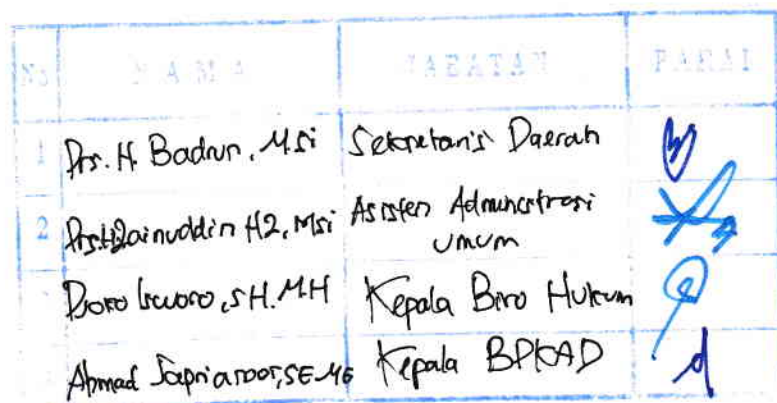 No NAMA JABATAN PARAF
1 Drs. H. Badrun, M.Si Sekretaris Daerah
2 Drs. H. Zainuddin HZ, Msi Asisten Administrasi
umum
SH. M.H Kepala Biro Hukum
Ahmad SE. ME Kepala BPKAD